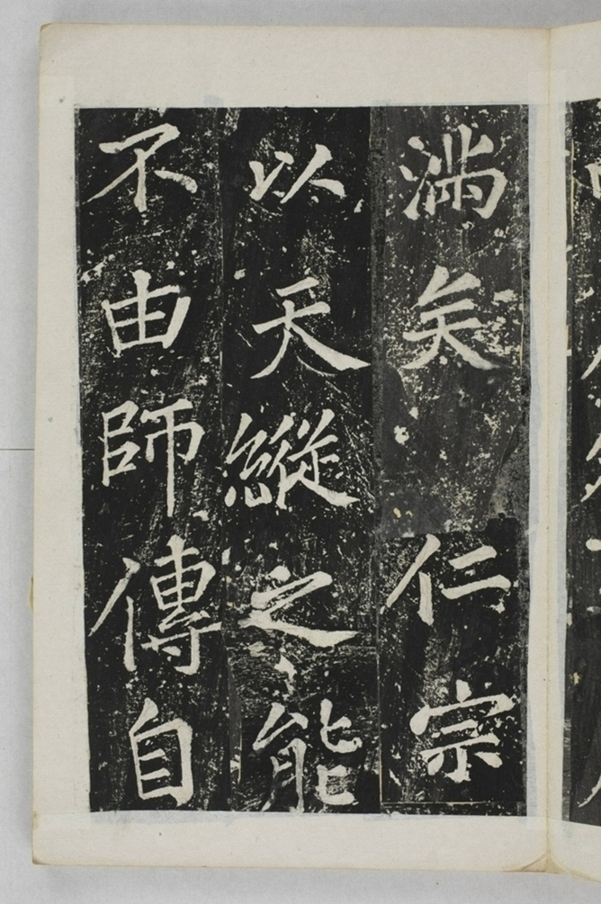 滿矣仁宗
以天縱之能
不由師傳自